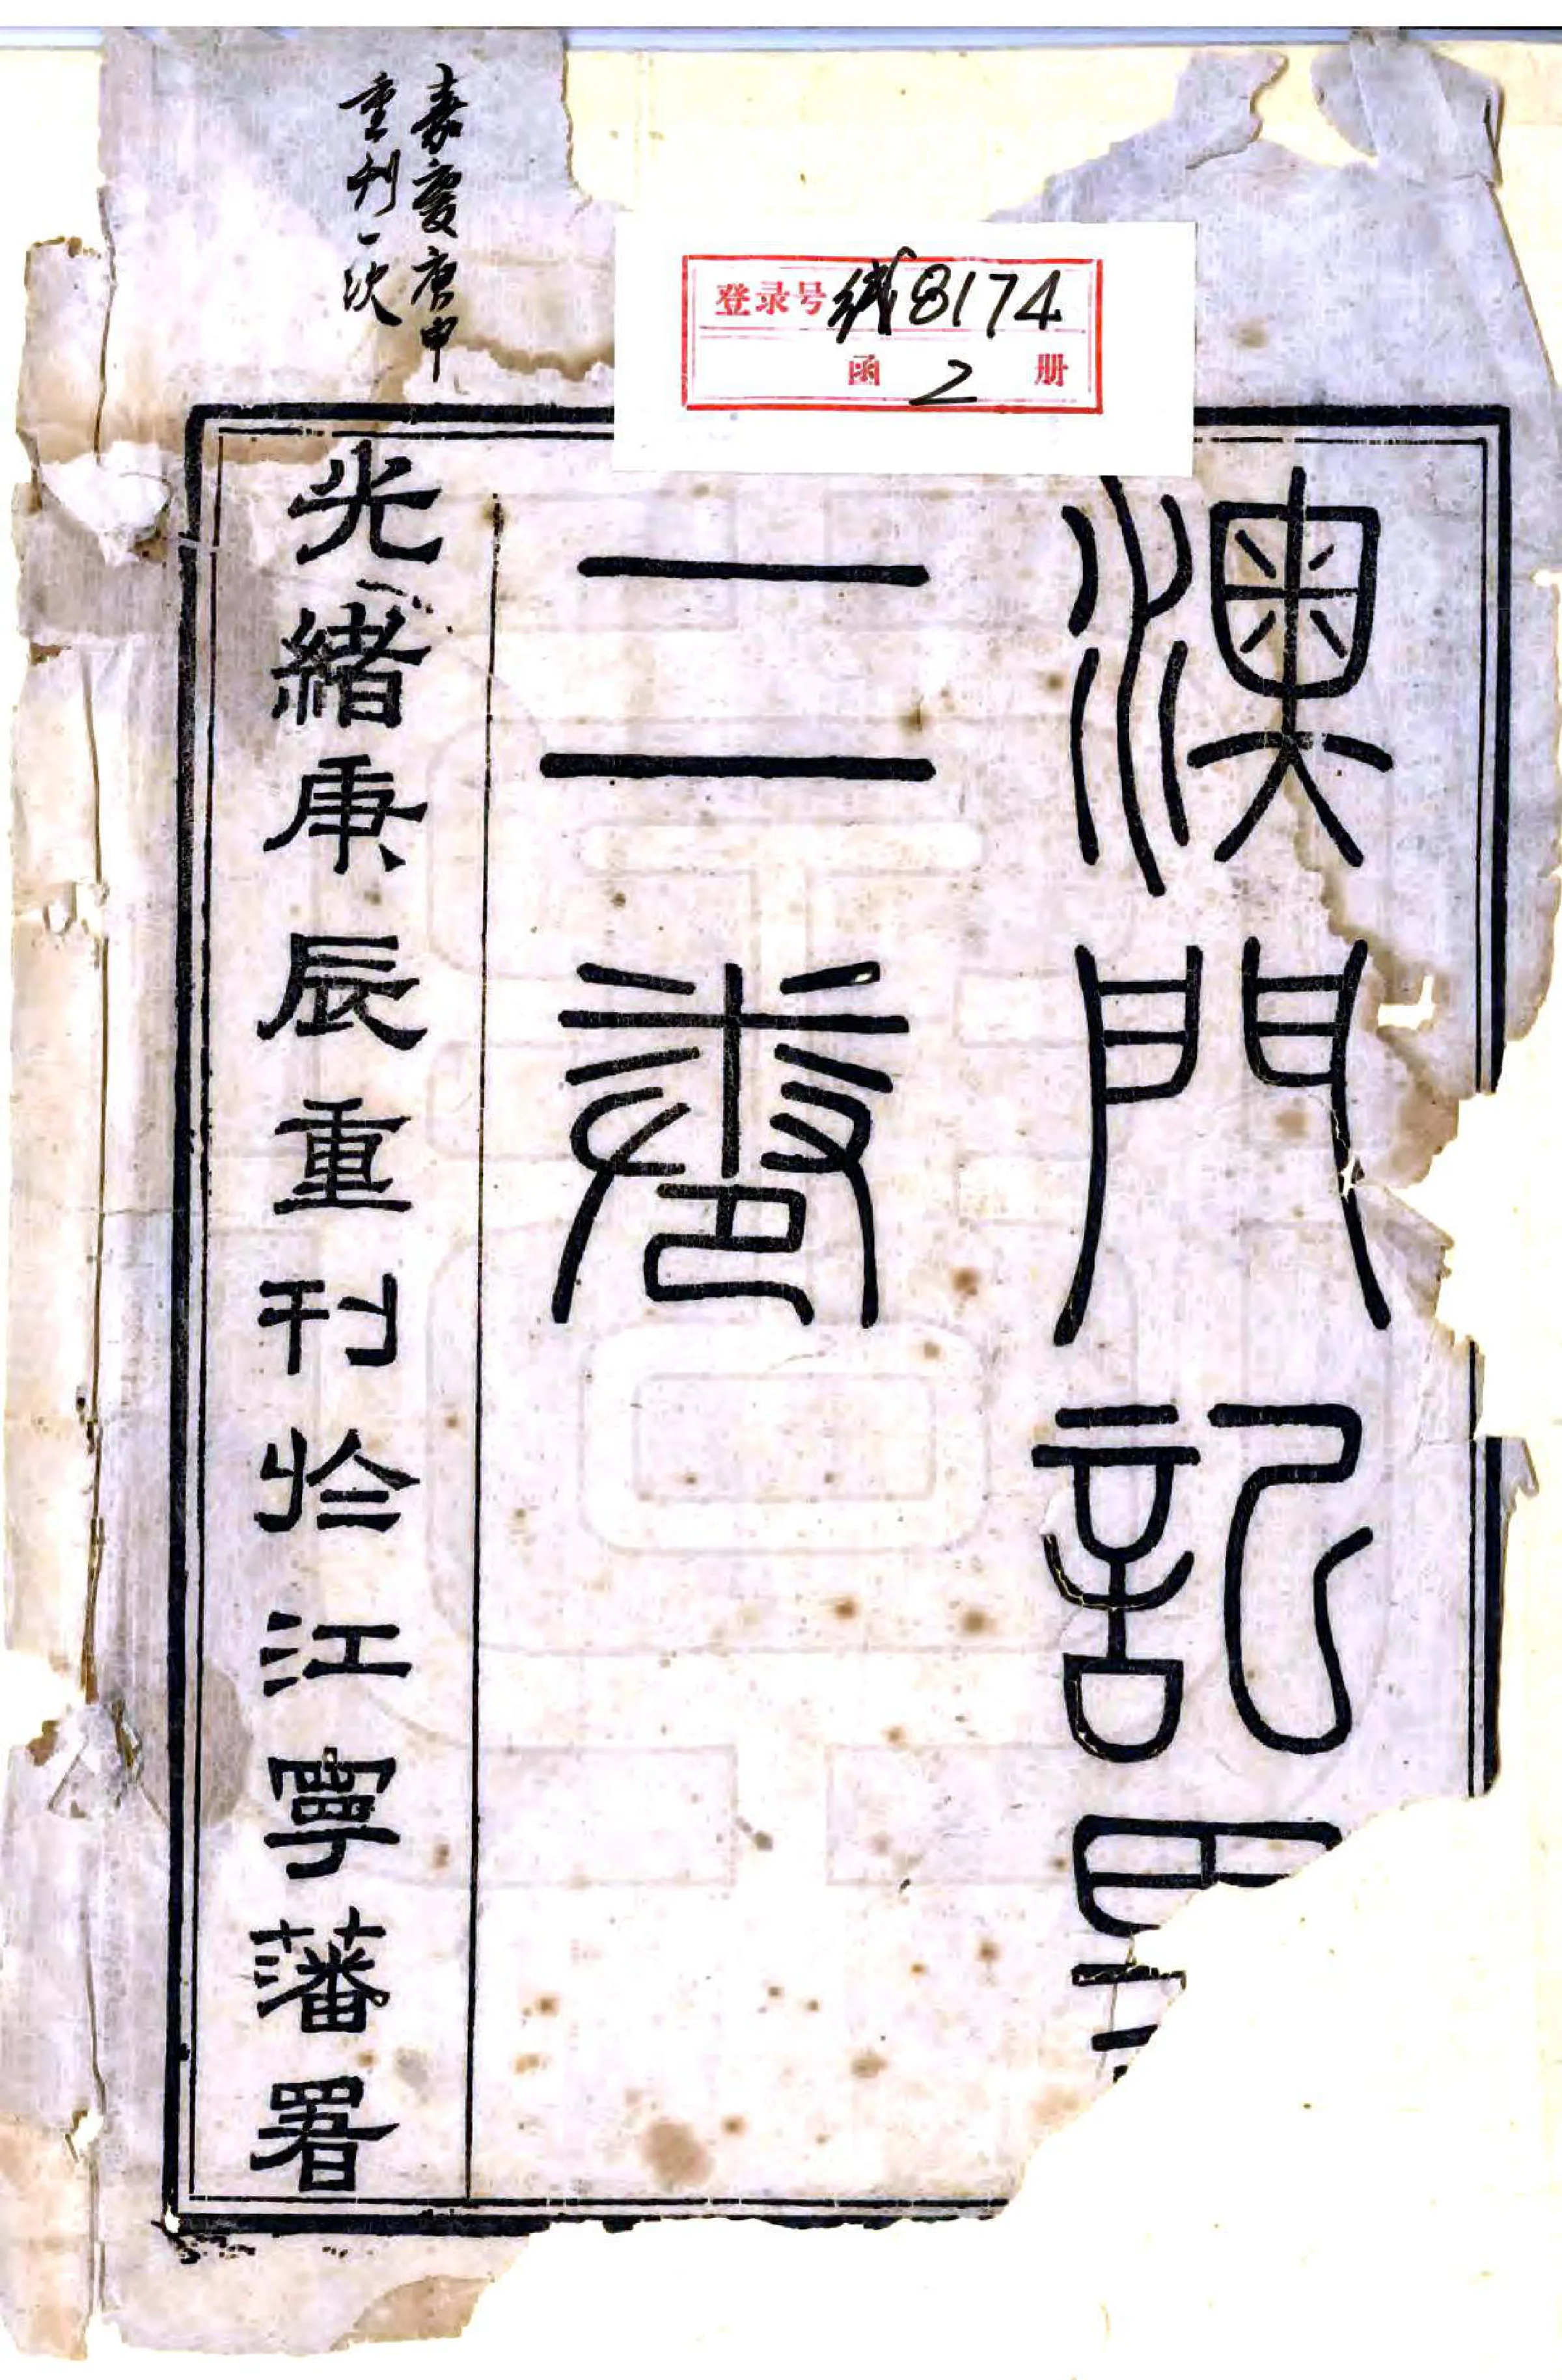 登录号 线8174
函 2 册
嘉慶庚申
重刊一次
澳門記
二卷
光緒庚辰重刊於江寧藩署